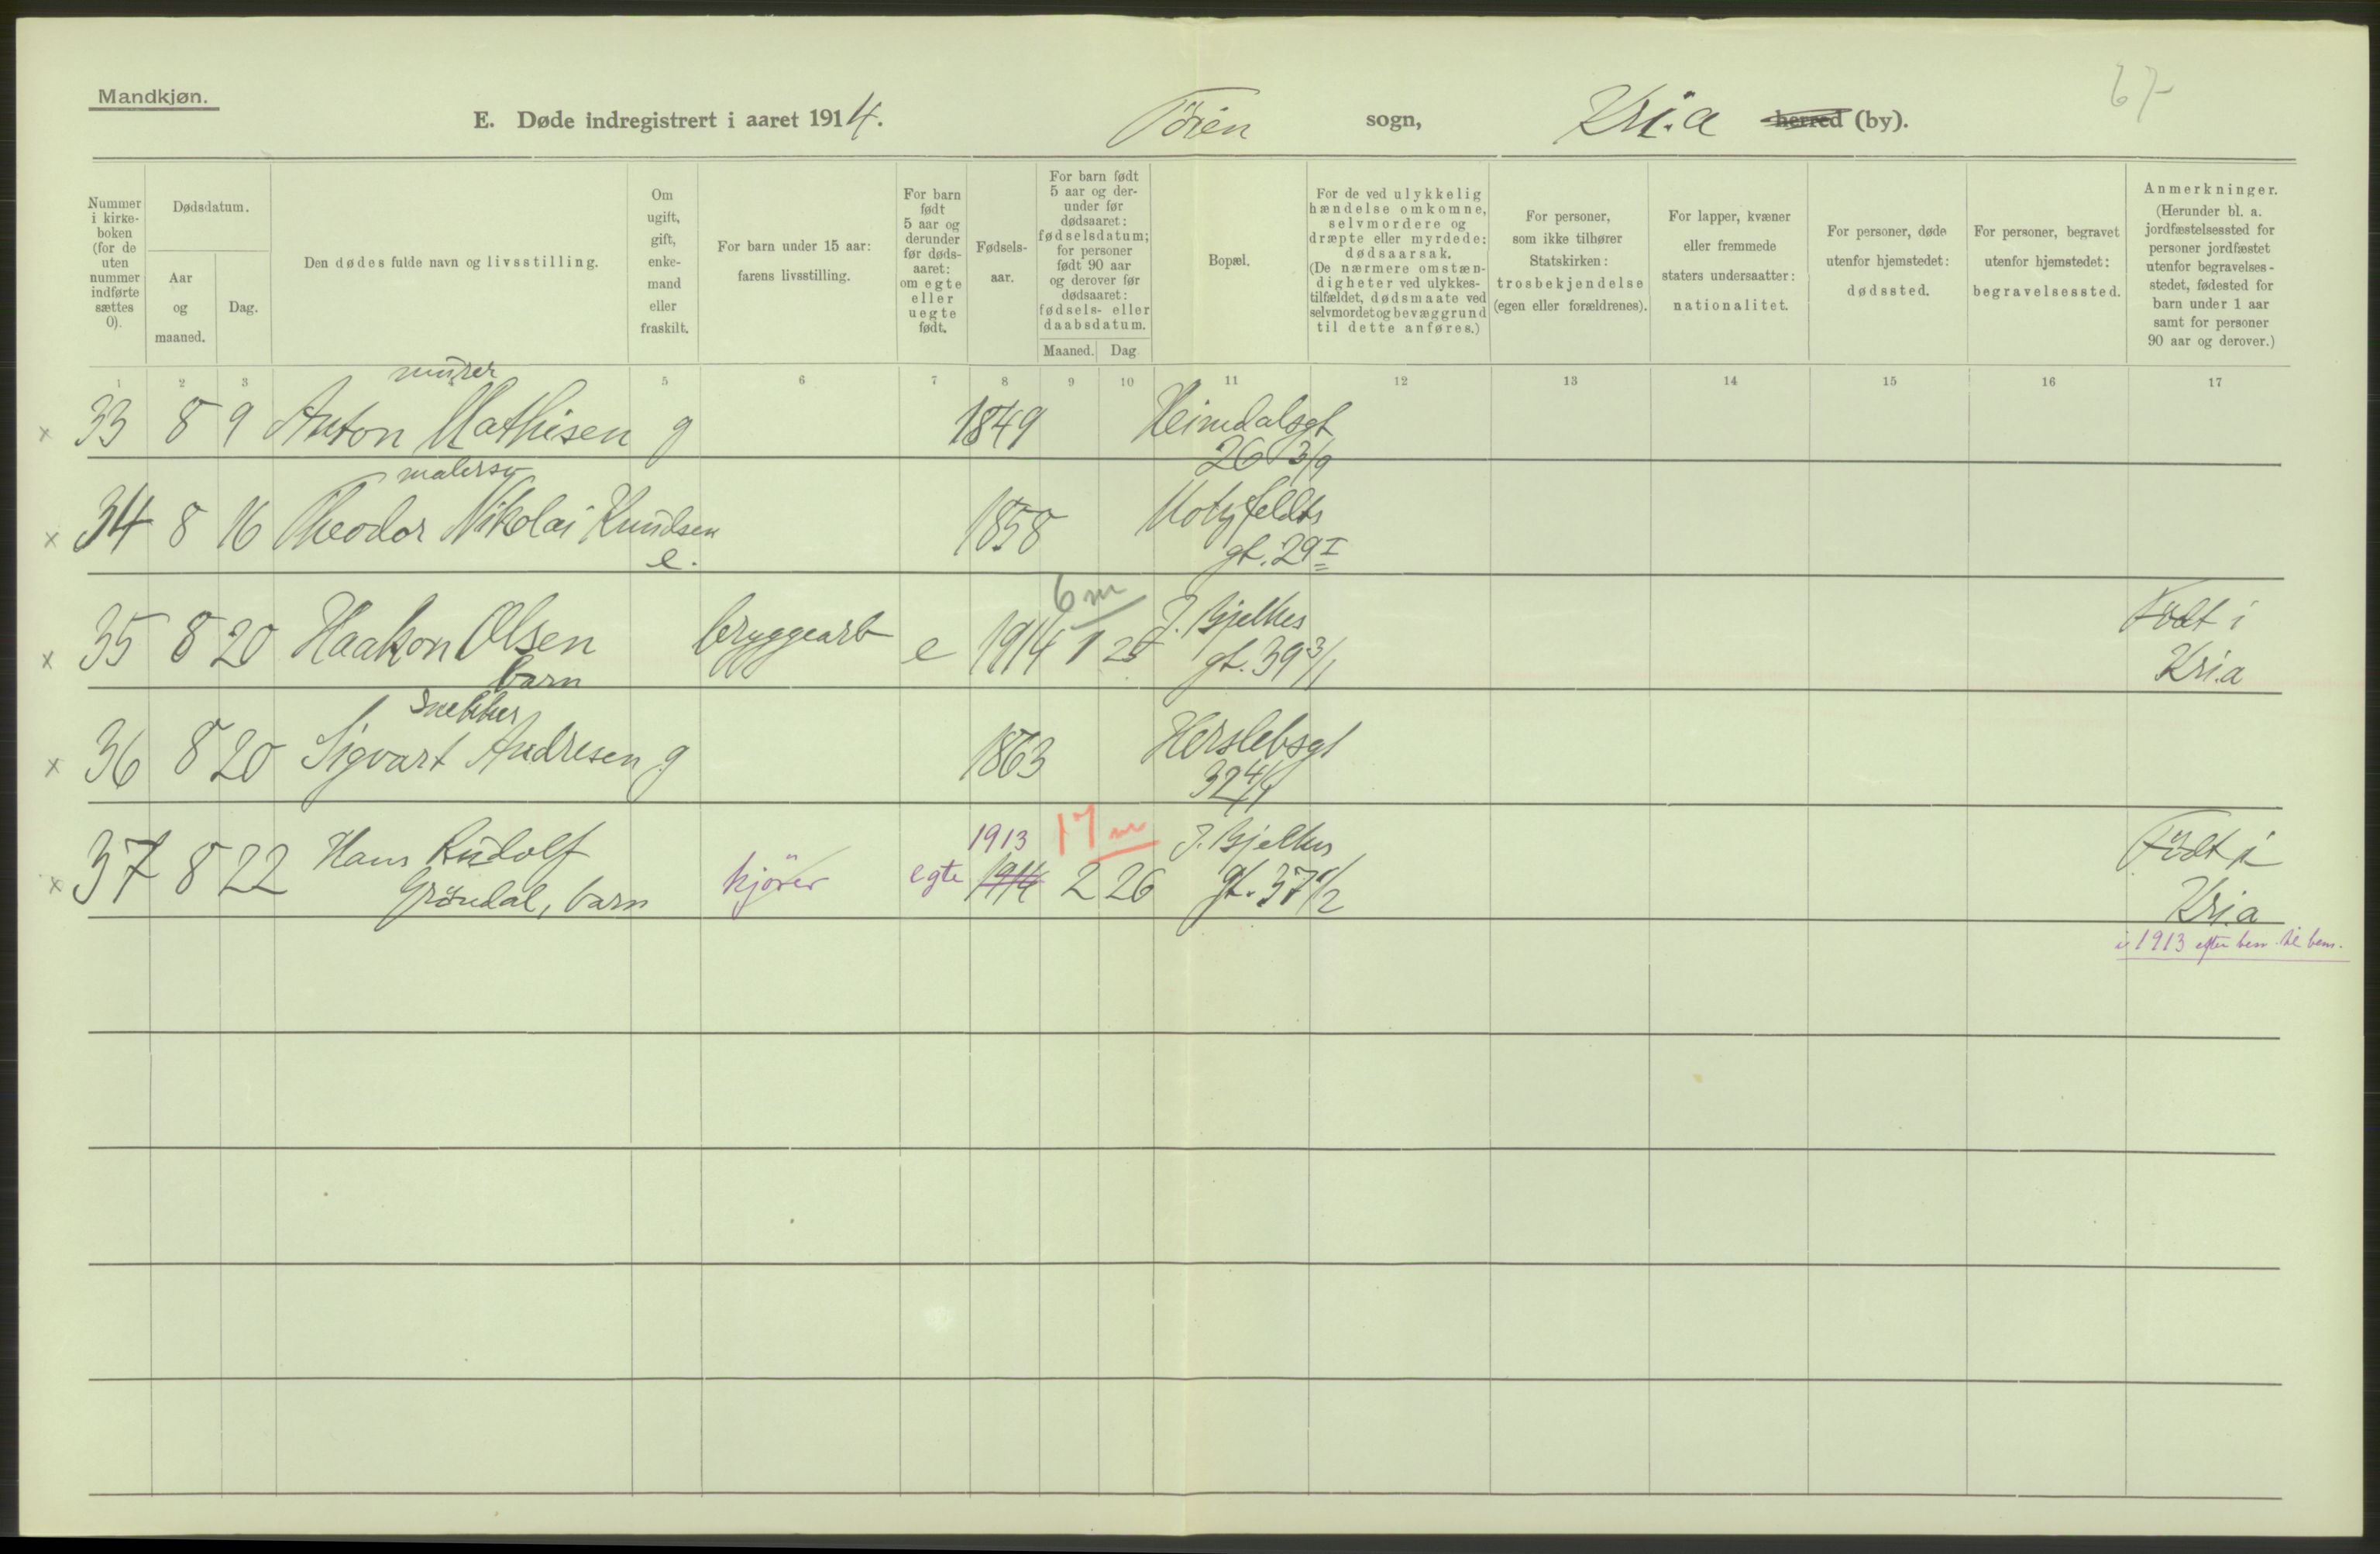 Mandkjøn.
67
E. Døde indregistrert i aaret 1914. Töien sogn, Kri.a herred (by).
Nummer i kirke- boken (for de uten nummer indførte sættes 0).
Dødsdatum.
Aar og maaned.
Dag.
Den dødes fulde navn og livsstilling.
Om ugift, gift, enke- mand eller fraskilt.
For barn under 15 aar: farens livsstilling.
For barn født 5 aar og derunder før døds- aaret: om egte eller uegte født.
Fødsels- aar.
For barn født 5 aar og der- under før dødsaaret: fødselsdatum; for personer født 90 aar og derover før dødsaaret: fødsels- eller daabsdatum.
Maaned. Dag
Bopæl.
For de ved ulykkelig hændelse omkomne, selvmordere og dræpte eller myrdede: dødsaarsak. (De nærmere omstæn- digheter ved ulykkes- tilfældet, dødsmaate ved selvmordet og bevæggrund til dette anføres.)
For personer, som ikke tilhører Statskirken: trosbekjendelse (egen eller forældrenes).
For lapper, kvæner eller fremmede staters undersaatter: nationalitet.
For personer, døde utenfor hjemstedet: dødssted.
For personer, begravet utenfor hjemstedet: begravelsessted.
Anmerkninger. (Herunder bl. a. jordfæstelsessted for personer jordfæstet utenfor begravelses- stedet, fødested for barn under 1 aar samt for personer 90 aar og derover.)
1 2 3 4 5 6 7 8 9 10 11 12 13 14 15 16 17
murer
x 33 8 9 Anton Mathisen g 1849 Heimdalsgt
26 3/9
malersv
x 34 8 16 Theodor Nikolai Knudsen 1858 Motzfeldts
e. gt. 29 I
6 m
x 35 8 20 Haakon Olsen bryggearb e 1914 1 25 J. Bjelkes Födt i
barn gt. 39 3/1 Kri.a
Snekker
x 36 8 20 Sigvart Andresen g 1863 Herslebsgt
32 4/1
1913 17 m
x 37 8 22 Hans Rudolf kjörer egte 1914 2 26 J. Bjelkes Födt i
Gröndal, barn gt. 37 1/2 Kri.a
i 1913 efter bem. til bem.